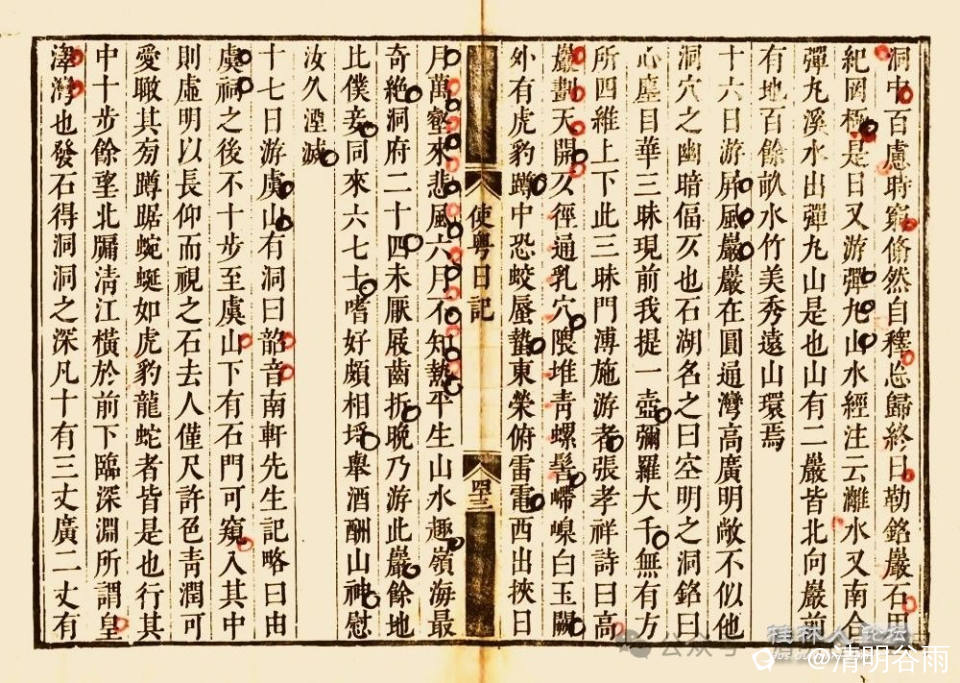 洞中百慮時窮翛然自釋忘歸終日勒銘巖石用
紀罔極是日又游彈丸山水經注云灕水又南合
彈丸溪水出彈丸山是也山有二巖皆北向巖前
有地百餘畝水竹美秀遠山環焉
十六日游屏風巖巖在圓通灣高廣明敞不似他
洞穴之幽暗偪仄也石湖名之曰空明之洞銘曰
心塵目華三昧現前我提一壺彌羅大千無有方
所四維上下此三昧門溥施游者張孝祥詩曰高
巖劃天開仄徑通乳穴隈堆青螺髻嵲白玉闕
外有虎豹蹲中恐蛟蜃蟄東榮俯雷電西出挾日
使粵日記
四三
月萬壑來悲風六月不知熱平生山水趣嶺海最
奇絕洞府二十四未厭屐齒折晚乃游此巖餘地
比僕妾同來六七士嗜好頗相埒舉酒酬山神慰
汝久湮滅
十七日游虞山有洞曰韶音南軒先生記略曰由
虞祠之後不十步至虞山下有石門可窺入其中
則虛明以長仰而視之石去人僅尺許色青潤可
愛瞰其旁蹲踞蜿蜒如虎豹龍蛇者皆是也行其
中十步餘望北牖清江橫於前下臨深淵所謂皇
澤灣也發石得洞洞之深凡十有三丈廣二丈有
公众号
桂林人论坛
@清明谷雨